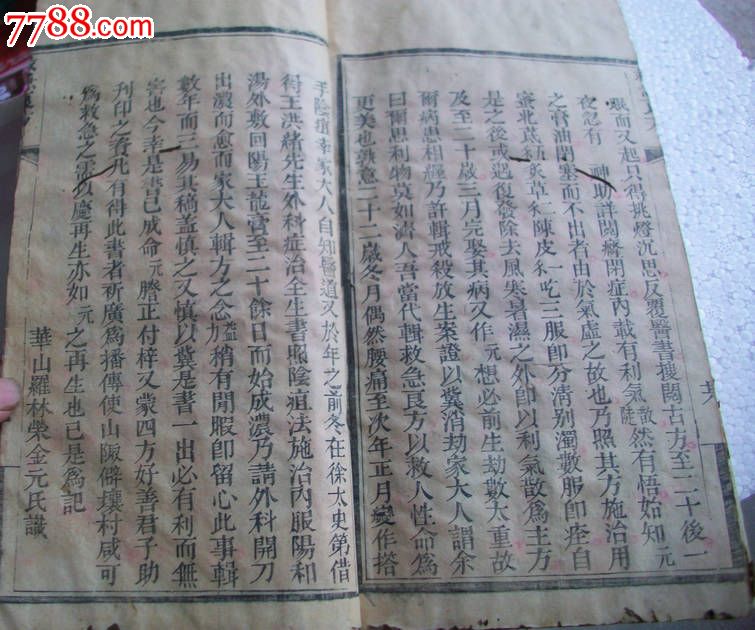 7788.com
眠而又起只得挑燈沉思反覆醫書搜閱古方至二十後一
夜忽有神助詳閱癃閉症內載有利氣散陡然有悟如知元
之膏油閉塞而不出者由於氣虛之故也乃照其方施治用
蜜北芪新炙草仁陳皮禾一吃三服即分清别濁數服即痊自
是之後或遇復發除夫風寒暑濕之外即以利氣散為主方
及至二十歲三月完娶其病又作元想必前生劫數太重故
爾病患相纏乃許輯戒殺放生案證以冀消劫家大人謂余
曰爾思利物莫如濟人吾當代輯救急艮方以救人性命為
更美也孰意二十二歲冬月偶然腰痛至次年正月變作搭
手陰疽幸家大人自知醫道又於年之前冬在徐太史第借
得王洪緒先生外科症治全生書照陰疽法施治內服陽和
湯外敷回陽玉龍膏至二十餘日而始成濃乃請外科開刀
出濃而愈而家大人輯方之念益加稍有閒暇即留心此事輯
數年而三易其稿盖慎之又慎以冀是書一出必有利而無
害也今幸是書已成命元謄正付梓又蒙四方好善君子助
刊印之資凡有得此書者祈廣為播傳使山陬僻壤村咸可
為救急之需以慶再生亦如元之再生也已是為記
華山羅林榮金元氏識